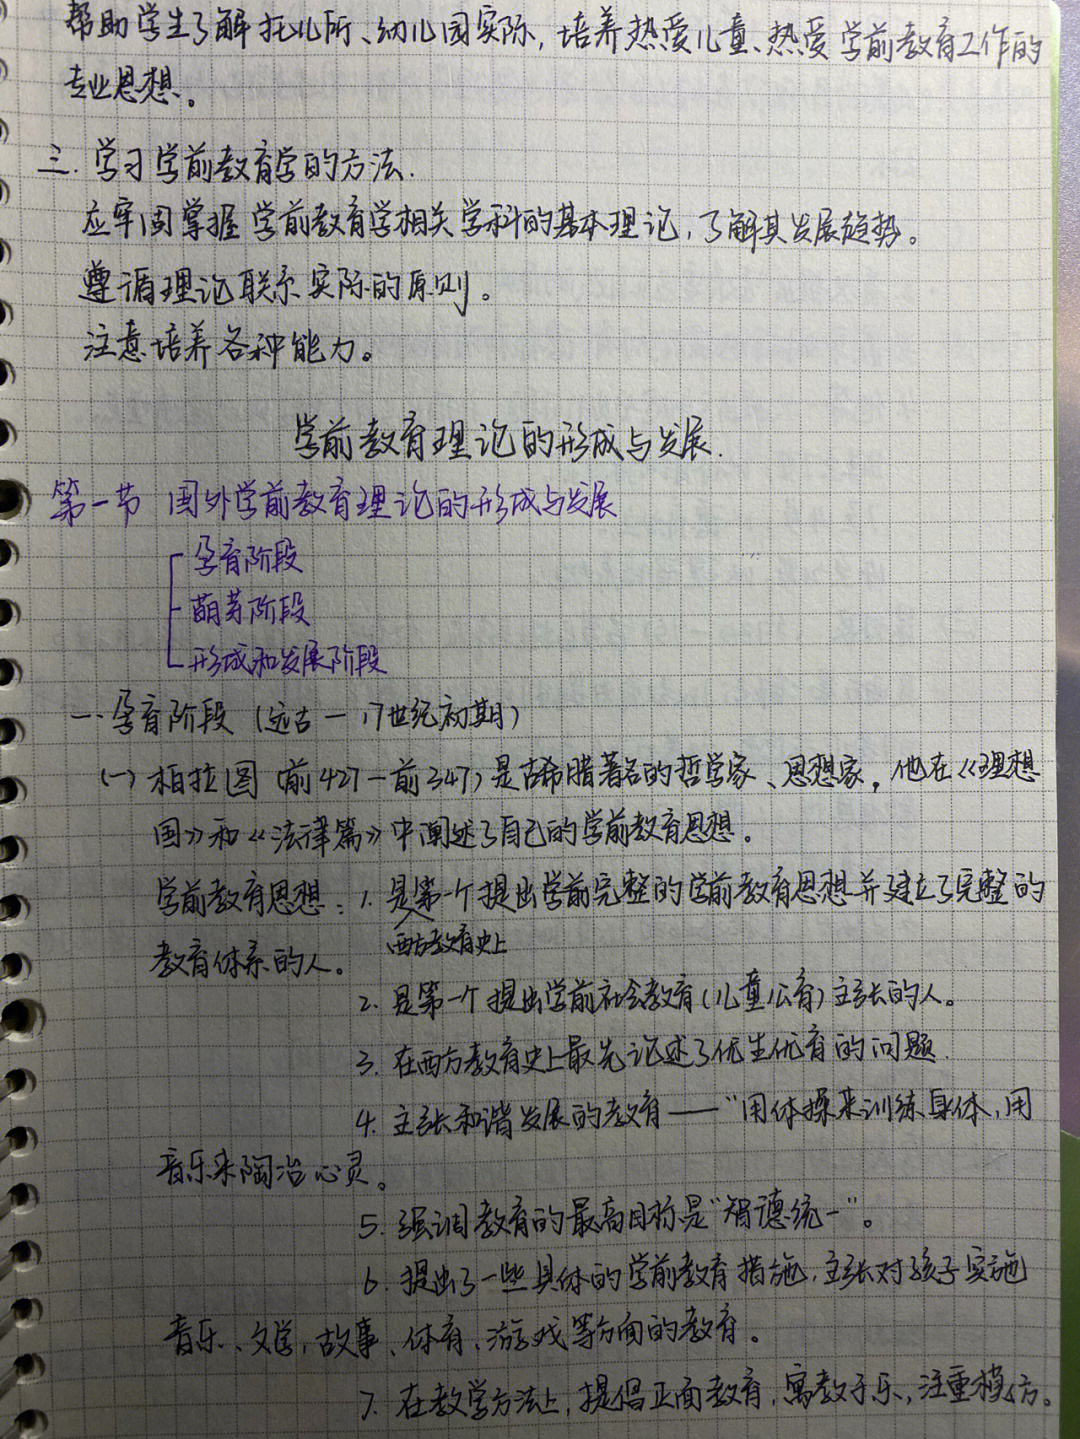 帮助学生了解托儿所、幼儿园实际，培养热爱儿童、热爱学前教育工作的
专业思想。
三. 学习学前教育学的方法.
应牢固掌握学前教育学相关学科的基本理论，了解其发展趋势。
遵循理论联系实际的原则。
注意培养各种能力。
学前教育理论的形成与发展.
第一节 国外学前教育理论的形成与发展
孕育阶段
萌芽阶段
形成和发展阶段
一. 孕育阶段（远古一17世纪初期）
(一) 柏拉图（前427-前347）是古希腊著名的哲学家、思想家，他在《理想
国》和《法律篇》中阐述了自己的学前教育思想。
学前教育思想：1. 是第一个提出学前完整的学前教育思想并建立了完整的
西方教育史上
教育体系的人。
2. 是第一个提出学前社会教育（儿童公育）主张的人。
3. 在西方教育史上最先论述了优生优育的问题.
4. 主张和谐发展的教育——“用体操来训练身体，用
音乐来陶冶心灵。
5. 强调教育的最高目标是“智德统一”。
6. 提出了一些具体的学前教育措施，主张对孩子实施
音乐、文学，故事、体育、游戏等方面的教育。
7. 在教学方法上，提倡正面教育，寓教于乐，注重模仿。